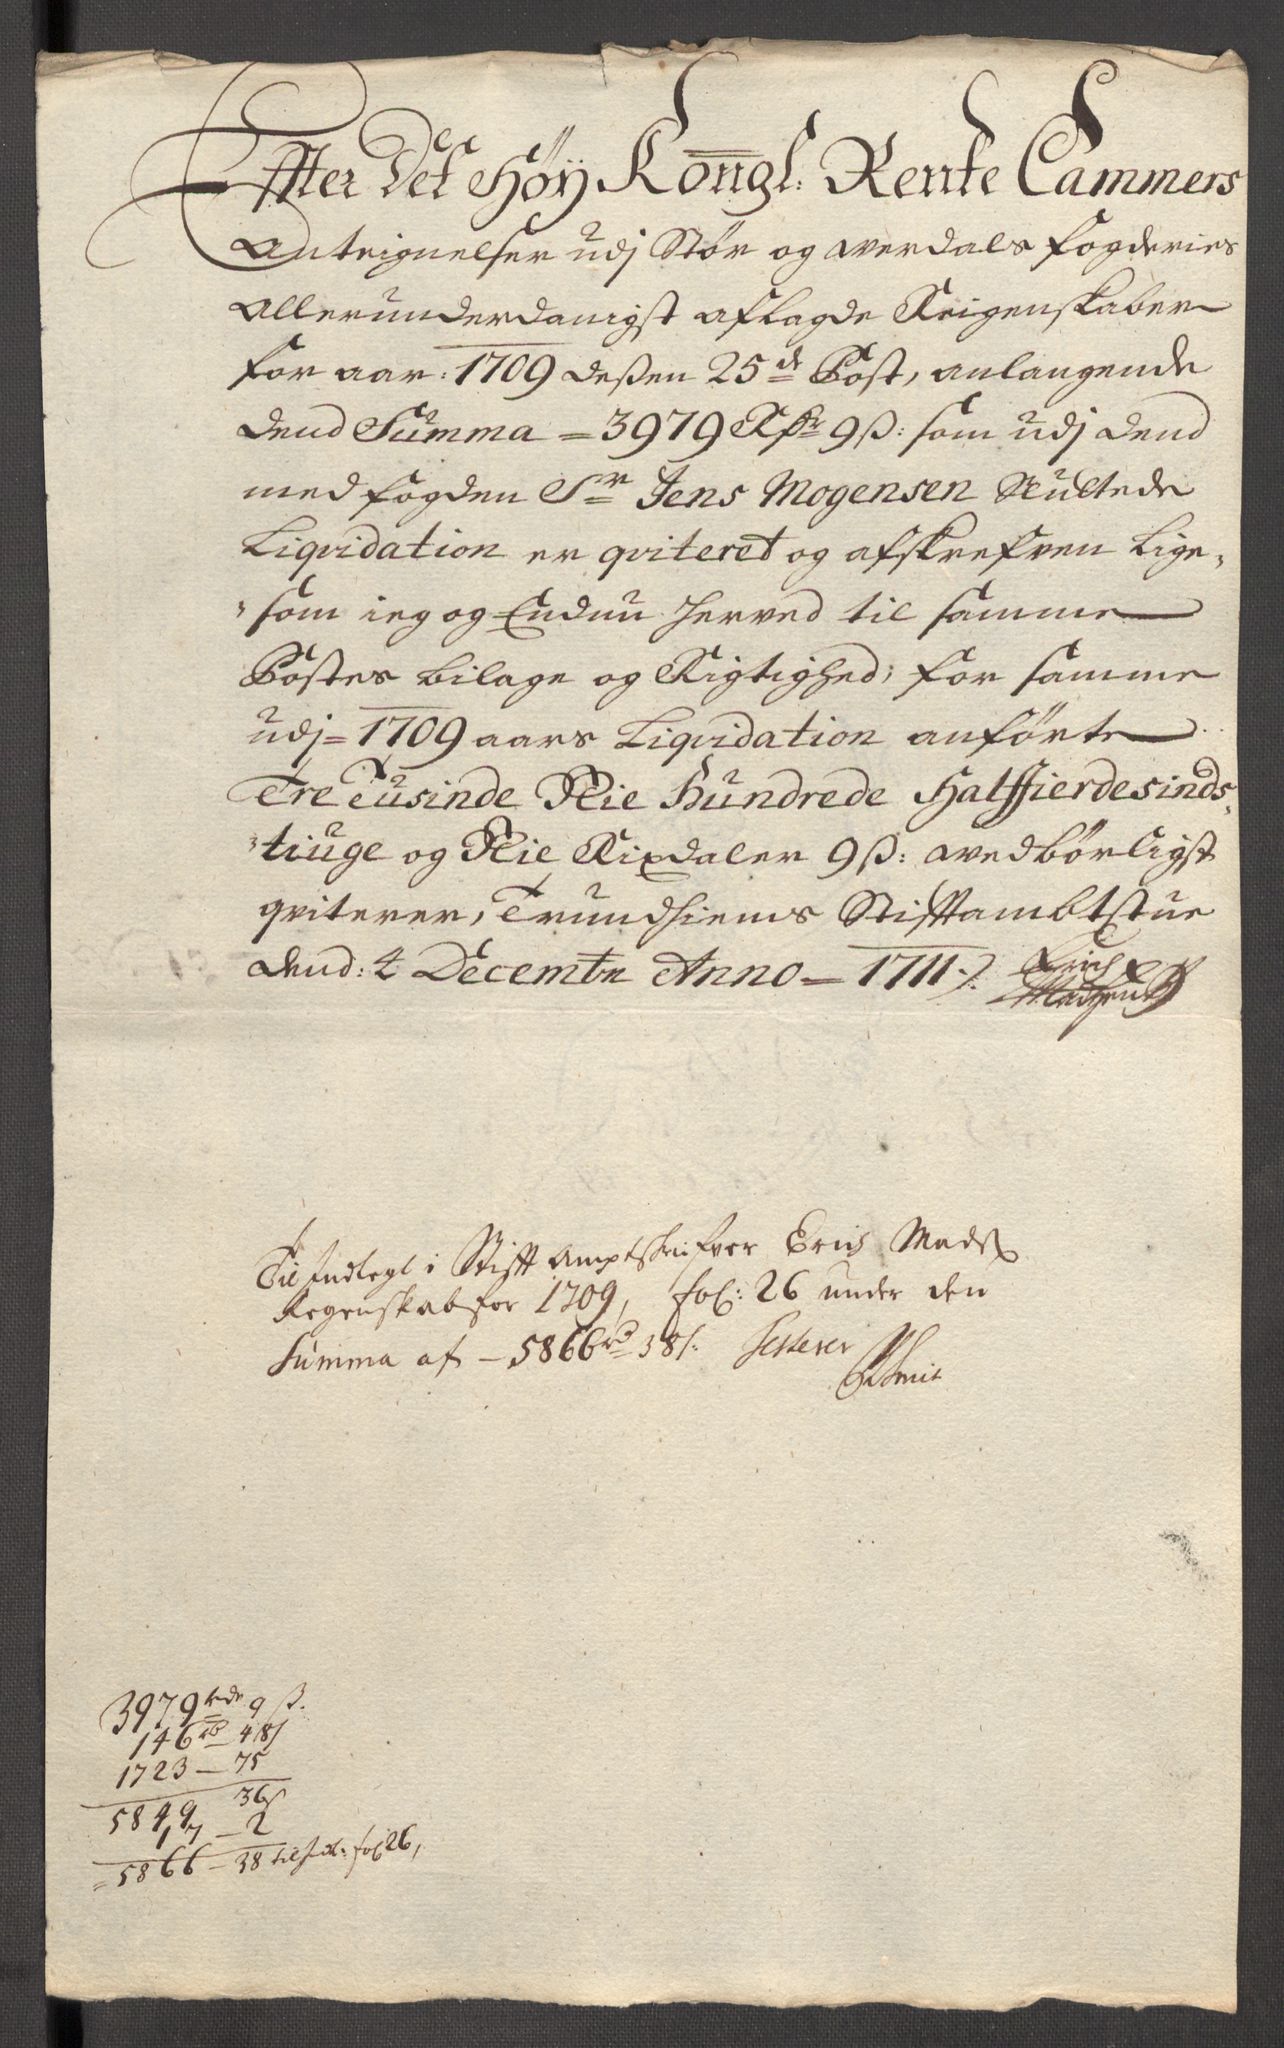 Efter Det Höÿ Kongl: Rente Cammers
Anteignelser udj Stör og werdals fogderies
Allerunderdanigst aflagde Reigenskaber
for aar: 1709 deßen 25de Post, anlangende
dend Summa = 3979 Rdr 9ß: som udj dend
med fogden Sr Jens Mogensen Sluttede
Liqvidation er qviteret og afskrefven Lige-
som ieg og Endnu herved til samme
Postes bilage og Rigtighed; for samme
udj = 1709 aars Liqvidation anförte
Tre Tusinde Nie Hundrede Halffierdesinds-
tiuge og Nie Rixdaler 9ß: wedbörligst
qviterer, Trundhiems Stifftambtstue
dend: 4 Decembr Anno = 1711 ./.
Erich Madsen
Til Indlegt i Stifft Amptskrifver Erich Madß
Regenskab for 1709, fol: 26 under den
Summa af - 5866 rd 38s: Testerer
Smit
3979 rdr 9 ß.
146 rd 48s
1723 - 75
5849 36s
17 - 2
= 5866 - 38 til fol 26,